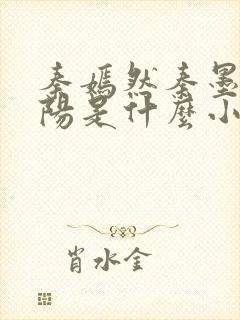 秦嫣然秦墨
阳是什麼小
肖水金